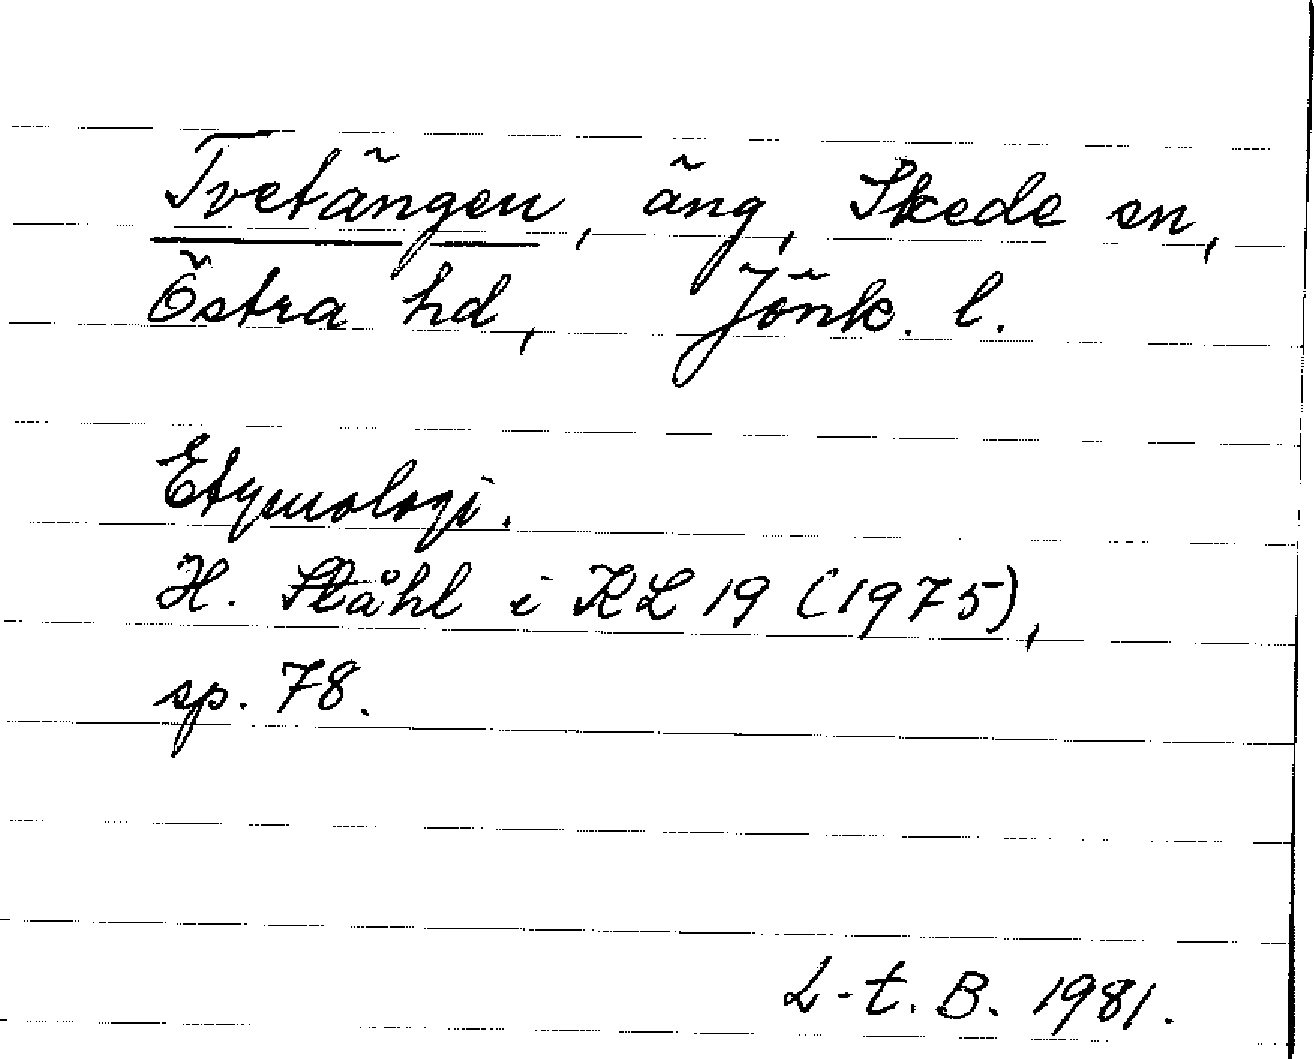 Tvetängen, äng, Skede sn,
Östra hd, Jönk. l.
Etymologi.
H. Ståhl i KL 19 (1975),
sp. 78.
L-t. B. 1981.